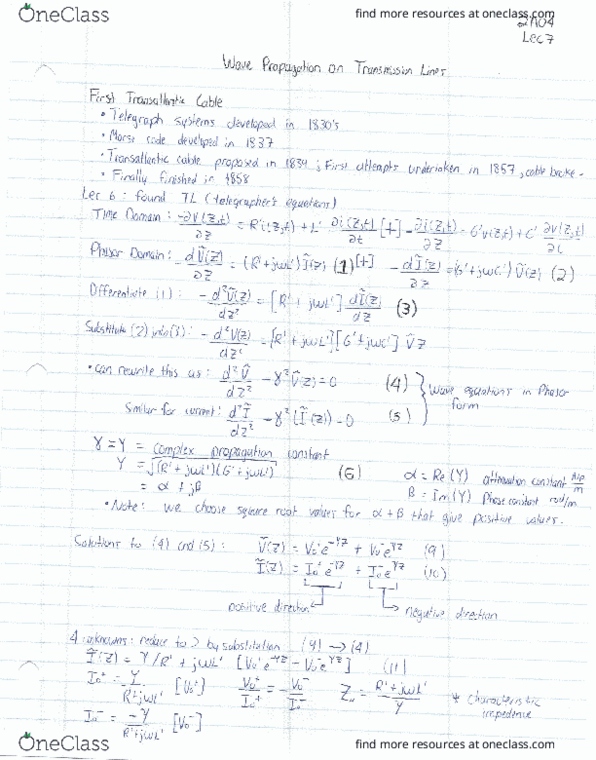 OneClass
find more resources at oneclass.com
2A04
Lec 7
Wave Propagation on Transmission Lines
First Transatlantic Cable
• Telegraph systems developed in 1830's
• Morse code developed in 1837
• Transatlantic cable proposed in 1839; First attempts undertaken in 1857, cable broke.
• Finally finished in 1858
Lec 6: found TL (telegrapher's equations)
Time Domain: -∂v(z,t)/∂z = R'i(z,t) + L' ∂i(z,t)/∂t [+] -∂i(z,t)/∂z = G'v(z,t) + C' ∂v(z,t)/∂t
Phasor Domain: -dṼ(z)/∂z = (R'+jωL')Ĩ(z) (1) [+] -dĨ(z)/∂z = (G'+jωC')Ṽ(z) (2)
Differentiate (1): -d²Ṽ(z)/dz² = [R'+jωL'] dĨ(z)/dz (3)
Substitute (2) into (3): -d²V(z)/dz² = [R'+jωL'][G'+jωC'] Ṽz
• can rewrite this as: d²Ṽ/dz² - γ²Ṽ(z)=0 (4)
Wave equations in Phasor form
Similar for current: d²Ĩ/dz² - γ²(Ĩ(z))=0 (5)
γ = Y = complex propagation constant
Y = √(R'+jωL')(G'+jωL') (6)
= α + jβ
α = Re(Y) attenuation constant Np/m
β = Im(Y) Phase constant rad/m
• Note: we choose square root values for α+β that give positive values.
Solutions to (4) and (5): Ṽ(z) = V₀⁺e^-γz + V₀⁻e^γz (9)
Ĩ(z) = I₀⁺e^-γz + I₀⁻e^γz (10)
positive direction negative direction
4 unknowns: reduce to 2 by substitution (9) → (4)
Ĩ(z) = Y/R'+jωL' [V₀⁺e^-γz - V₀⁻e^γz] (11)
I₀⁺ = Y/R'+jωL' [V₀⁺] V₀⁺/I₀⁺ = -V₀⁻/I₀⁻ Z₀ = R'+jωL'/Y * characteristic impedence
I₀⁻ = -Y/R'+jωL' [V₀⁻]
OneClass
find more resources at oneclass.com